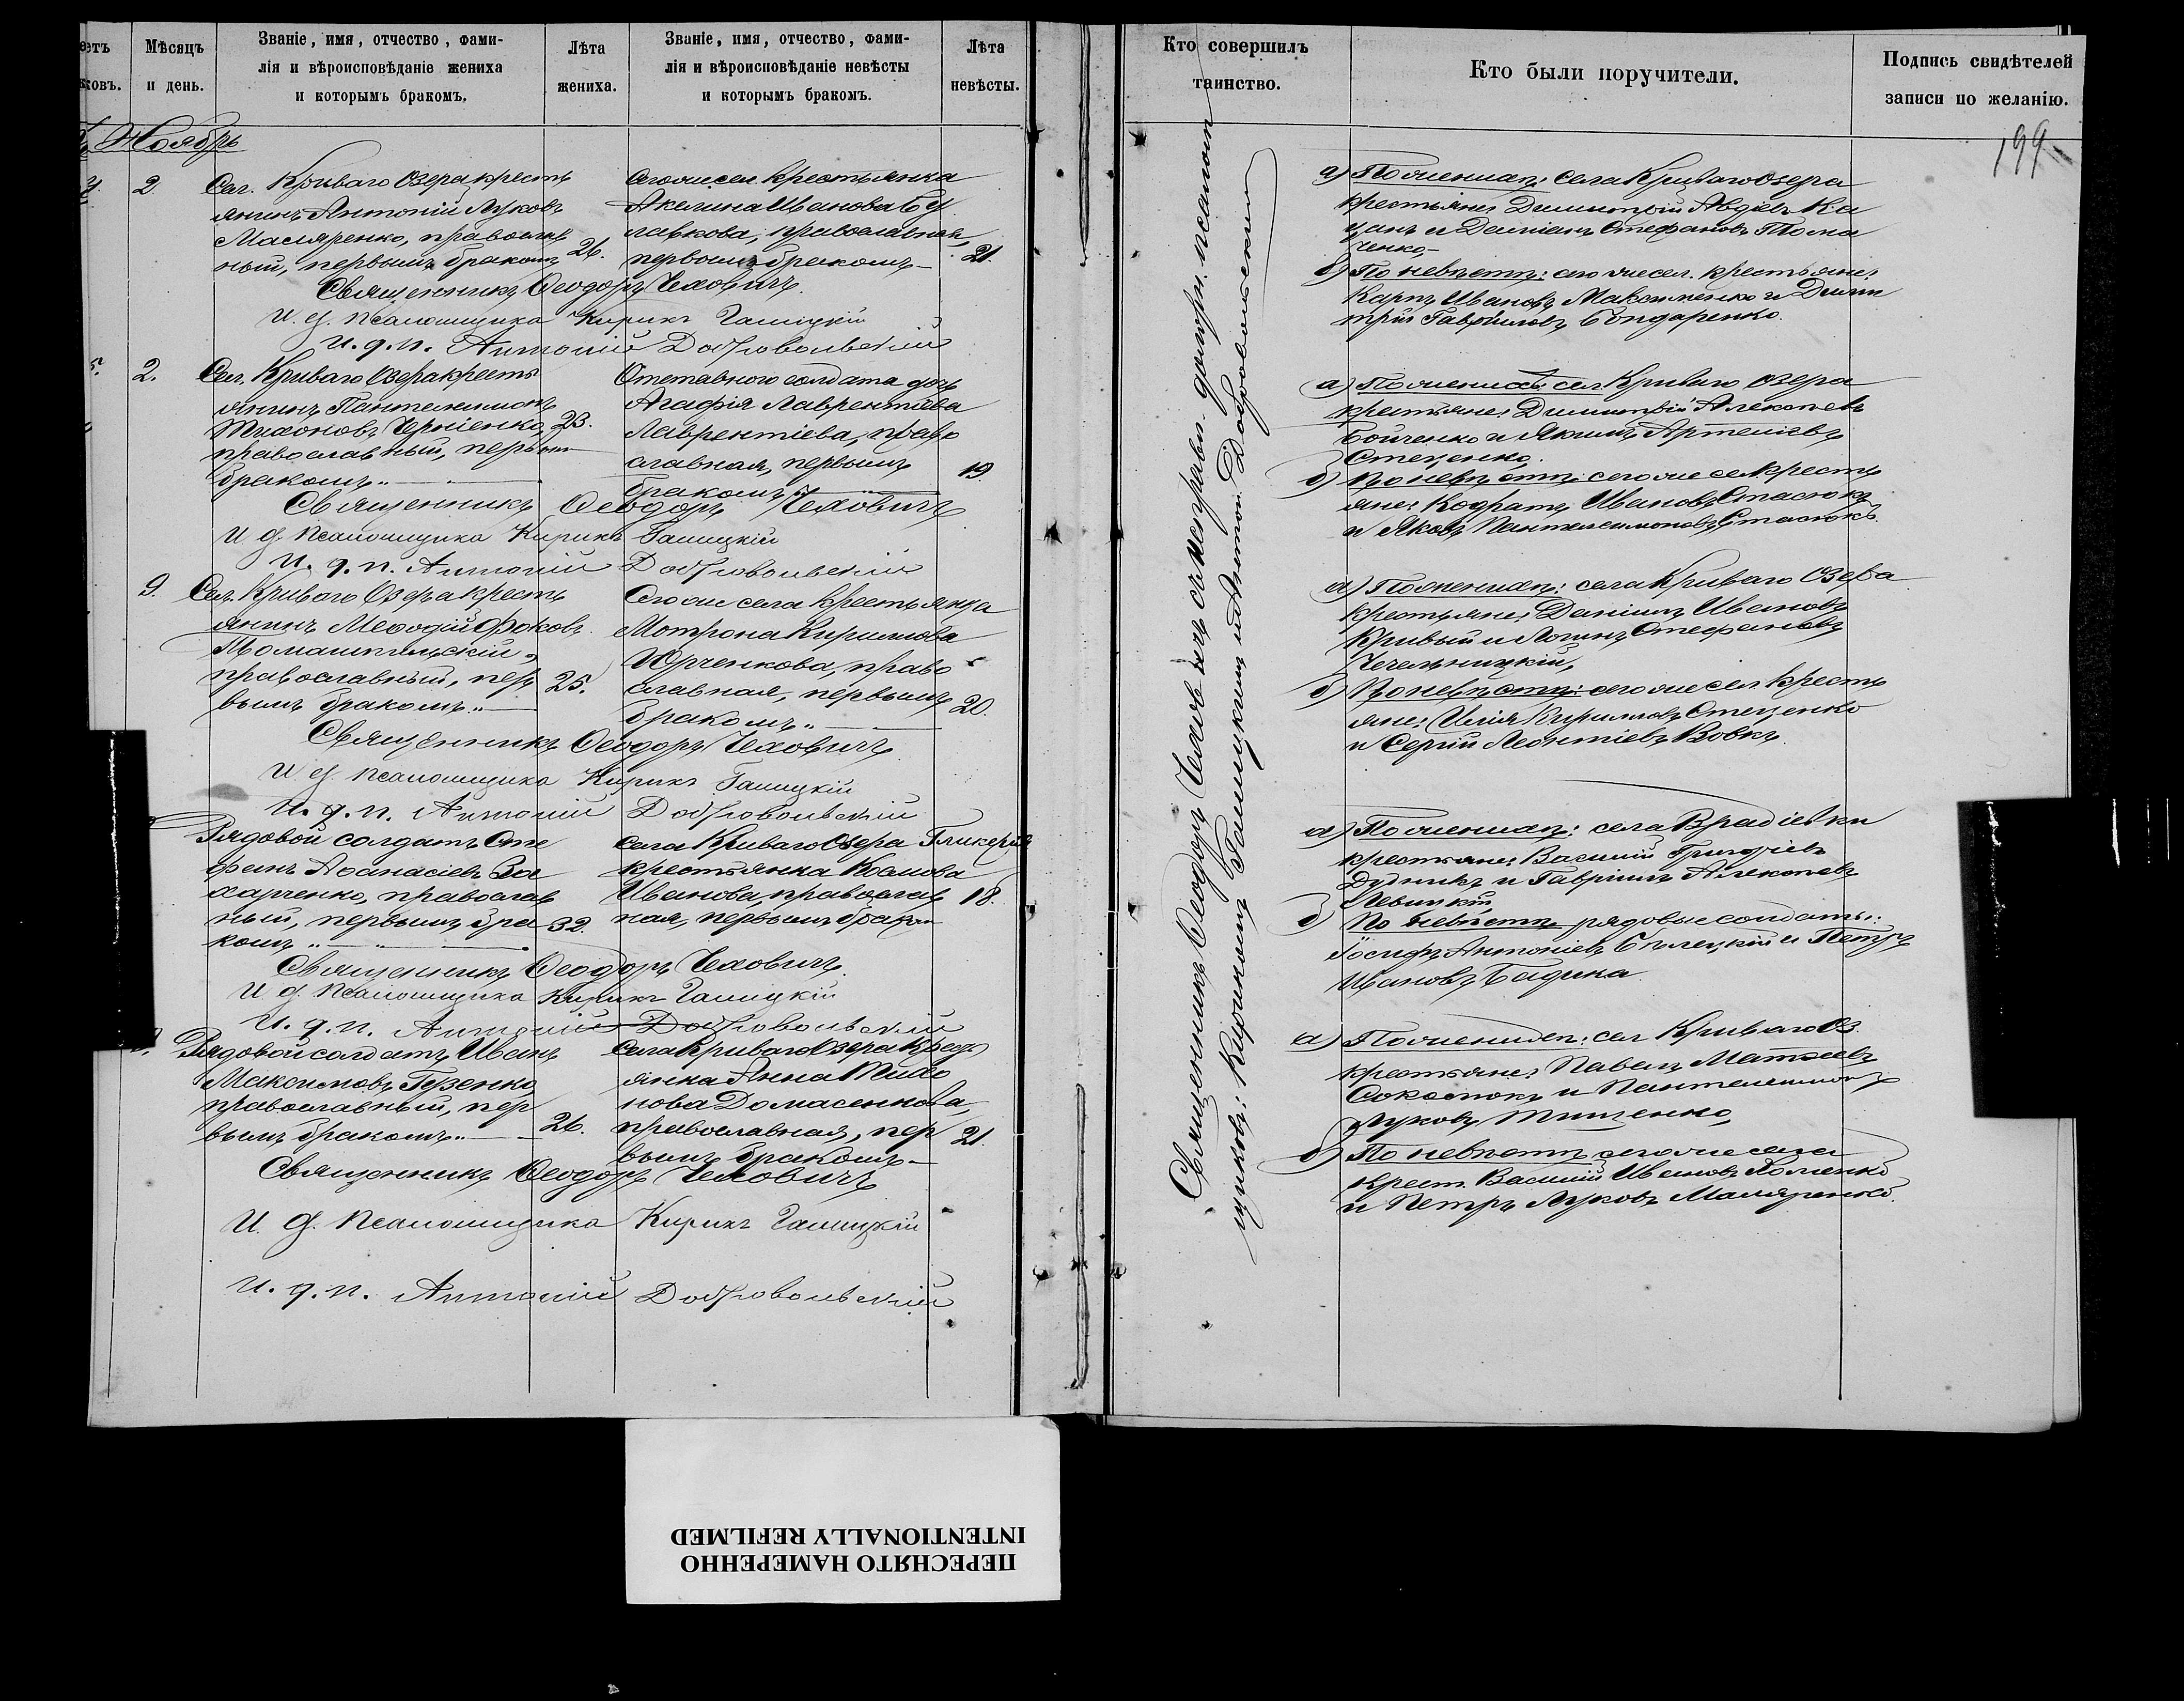 Мѣсяцъ
и день.
Званіе, имя, отчество, фами-
лія и вѣроисповѣданіе жениха
и которымъ бракомъ.
Лѣта
жениха.
Званіе, имя, отчество, фами-
лія и вѣроисповѣданіе невѣсты
и которымъ бракомъ.
Лѣта
невѣсты.
Ноябрь
2
Сел. Криваго Озера кресть
янинъ Антоній Луковъ
Масляренко, православ
ный, первымъ бракомъ
26.
Тогоже сел. крестьянка
Акелина Иванова
православная,
первымъ бракомъ
21.
Священникъ Ѳеодоръ Чеховичъ
И. д. псаломщика Кирикъ Галицкій
И. д. п. Антоній Добровольскій
2.
Сел. Криваго Озера кресть
янинъ Пантелеимонъ
Тихоновъ Черніенко,
православный, первымъ
бракомъ
23.
Отставного солдата дочь
Агафія Лаврентіева
Лаврентіева, право
славная, первымъ
бракомъ
19.
Священникъ Ѳеодоръ Чеховичъ
И. д. псаломщика Кирикъ Галицкій
И. д. п. Антоній Добровольскій
9.
Сел. Криваго Озера кресть
янинъ Меѳодій Фоковъ
Томашпильскій,
православный, пер
вымъ бракомъ
25.
Тогоже села крестьянка
Мотрона Кирилова
Юрченкова, право
славная, первымъ
бракомъ
20.
Священникъ Ѳеодоръ Чеховичъ
И. д. псаломщика Кирикъ Галицкій
И. д. п. Антоній Добровольскій
Рядовой солдатъ Сте
фанъ Аѳанасіевъ За
харченко, православ
ный, первымъ бра
комъ
32.
Села Криваго Озера Гликерія
крестьянка
Иванова, православ
ная, первымъ браком
18.
Священникъ Ѳеодоръ Чеховичъ
И. д. псаломщика Кирикъ Галицкій
И. д. п. Антоній Добровольскій
Рядовой солдатъ Иванъ
Максимовъ Гузенко,
православный, пер
вымъ бракомъ
26.
Села Криваго Озера крест
янка Анна Тихо
нова Домасенкова,
православная, пер
вымъ бракомъ
21.
Священникъ Ѳеодоръ Чеховичъ
И. д. псаломщика Кирикъ Галицкій
И. д. п. Антоній Добровольскій
Кто совершилъ
таинство.
Кто были поручители.
Подпись свидѣтелей
записи по желанію.
199
Священникъ Ѳеодоръ Чехов
щиковъ: Кирикомъ Галицкимъ и Антон. Добровольскимъ
а) По женихѣ: села Криваго Озера
крестьяне: Димитрій Авдіевъ Ка
цанъ и Даміанъ Стефановъ Тома
ченко,
б) По невѣстѣ: тогоже сел. крестьяне:
Карпъ Ивановъ Максименко и Дими
трій Гавриловъ Бондаренко.
а) По женихѣ: сел Криваго Озера
крестьяне: Димитрій Алексѣевъ
Бойченко и Якимъ Артеміевъ
Стеценко,
б) По невѣстѣ: тогоже сел крестъ
яне: Кодратъ Ивановъ Стасюкъ
и Яковъ Пантелеимоновъ Стасюкъ.
а) По женихѣ: села Криваго Озера
крестьяне: Даніилъ Ивановъ
Кривый и Логинъ Стефановъ
Чечельницкій,
б) По невѣстѣ: тогоже сел. кресть
яне: Илія Кириловъ Стеценко
и Сергій Леонтіевъ Вовкъ.
а) По женихѣ: села Врадіевки
крестьяне: Василій Григоріевъ
Дудникъ и Гавріилъ Алексѣевъ
Левицкій,
б) По невѣстѣ рядовые солдаты:
Іосифъ Антоніевъ Бѣлецкій и Петръ
Ивановъ Бадика.
а) По женихѣ: сел Криваго Оз.
крестьяне: Павелъ Матѳеевъ
Соколюкъ и Пантелеимонъ
Луковъ Тищенко,
б) По невѣстѣ тогоже села
крест. Василій Ивановъ Хоменко
и Петръ Луковъ Масляренко.
ПЕРЕСНЯТО НАМЕРЕННО
INTENTIONALLY REFILMED